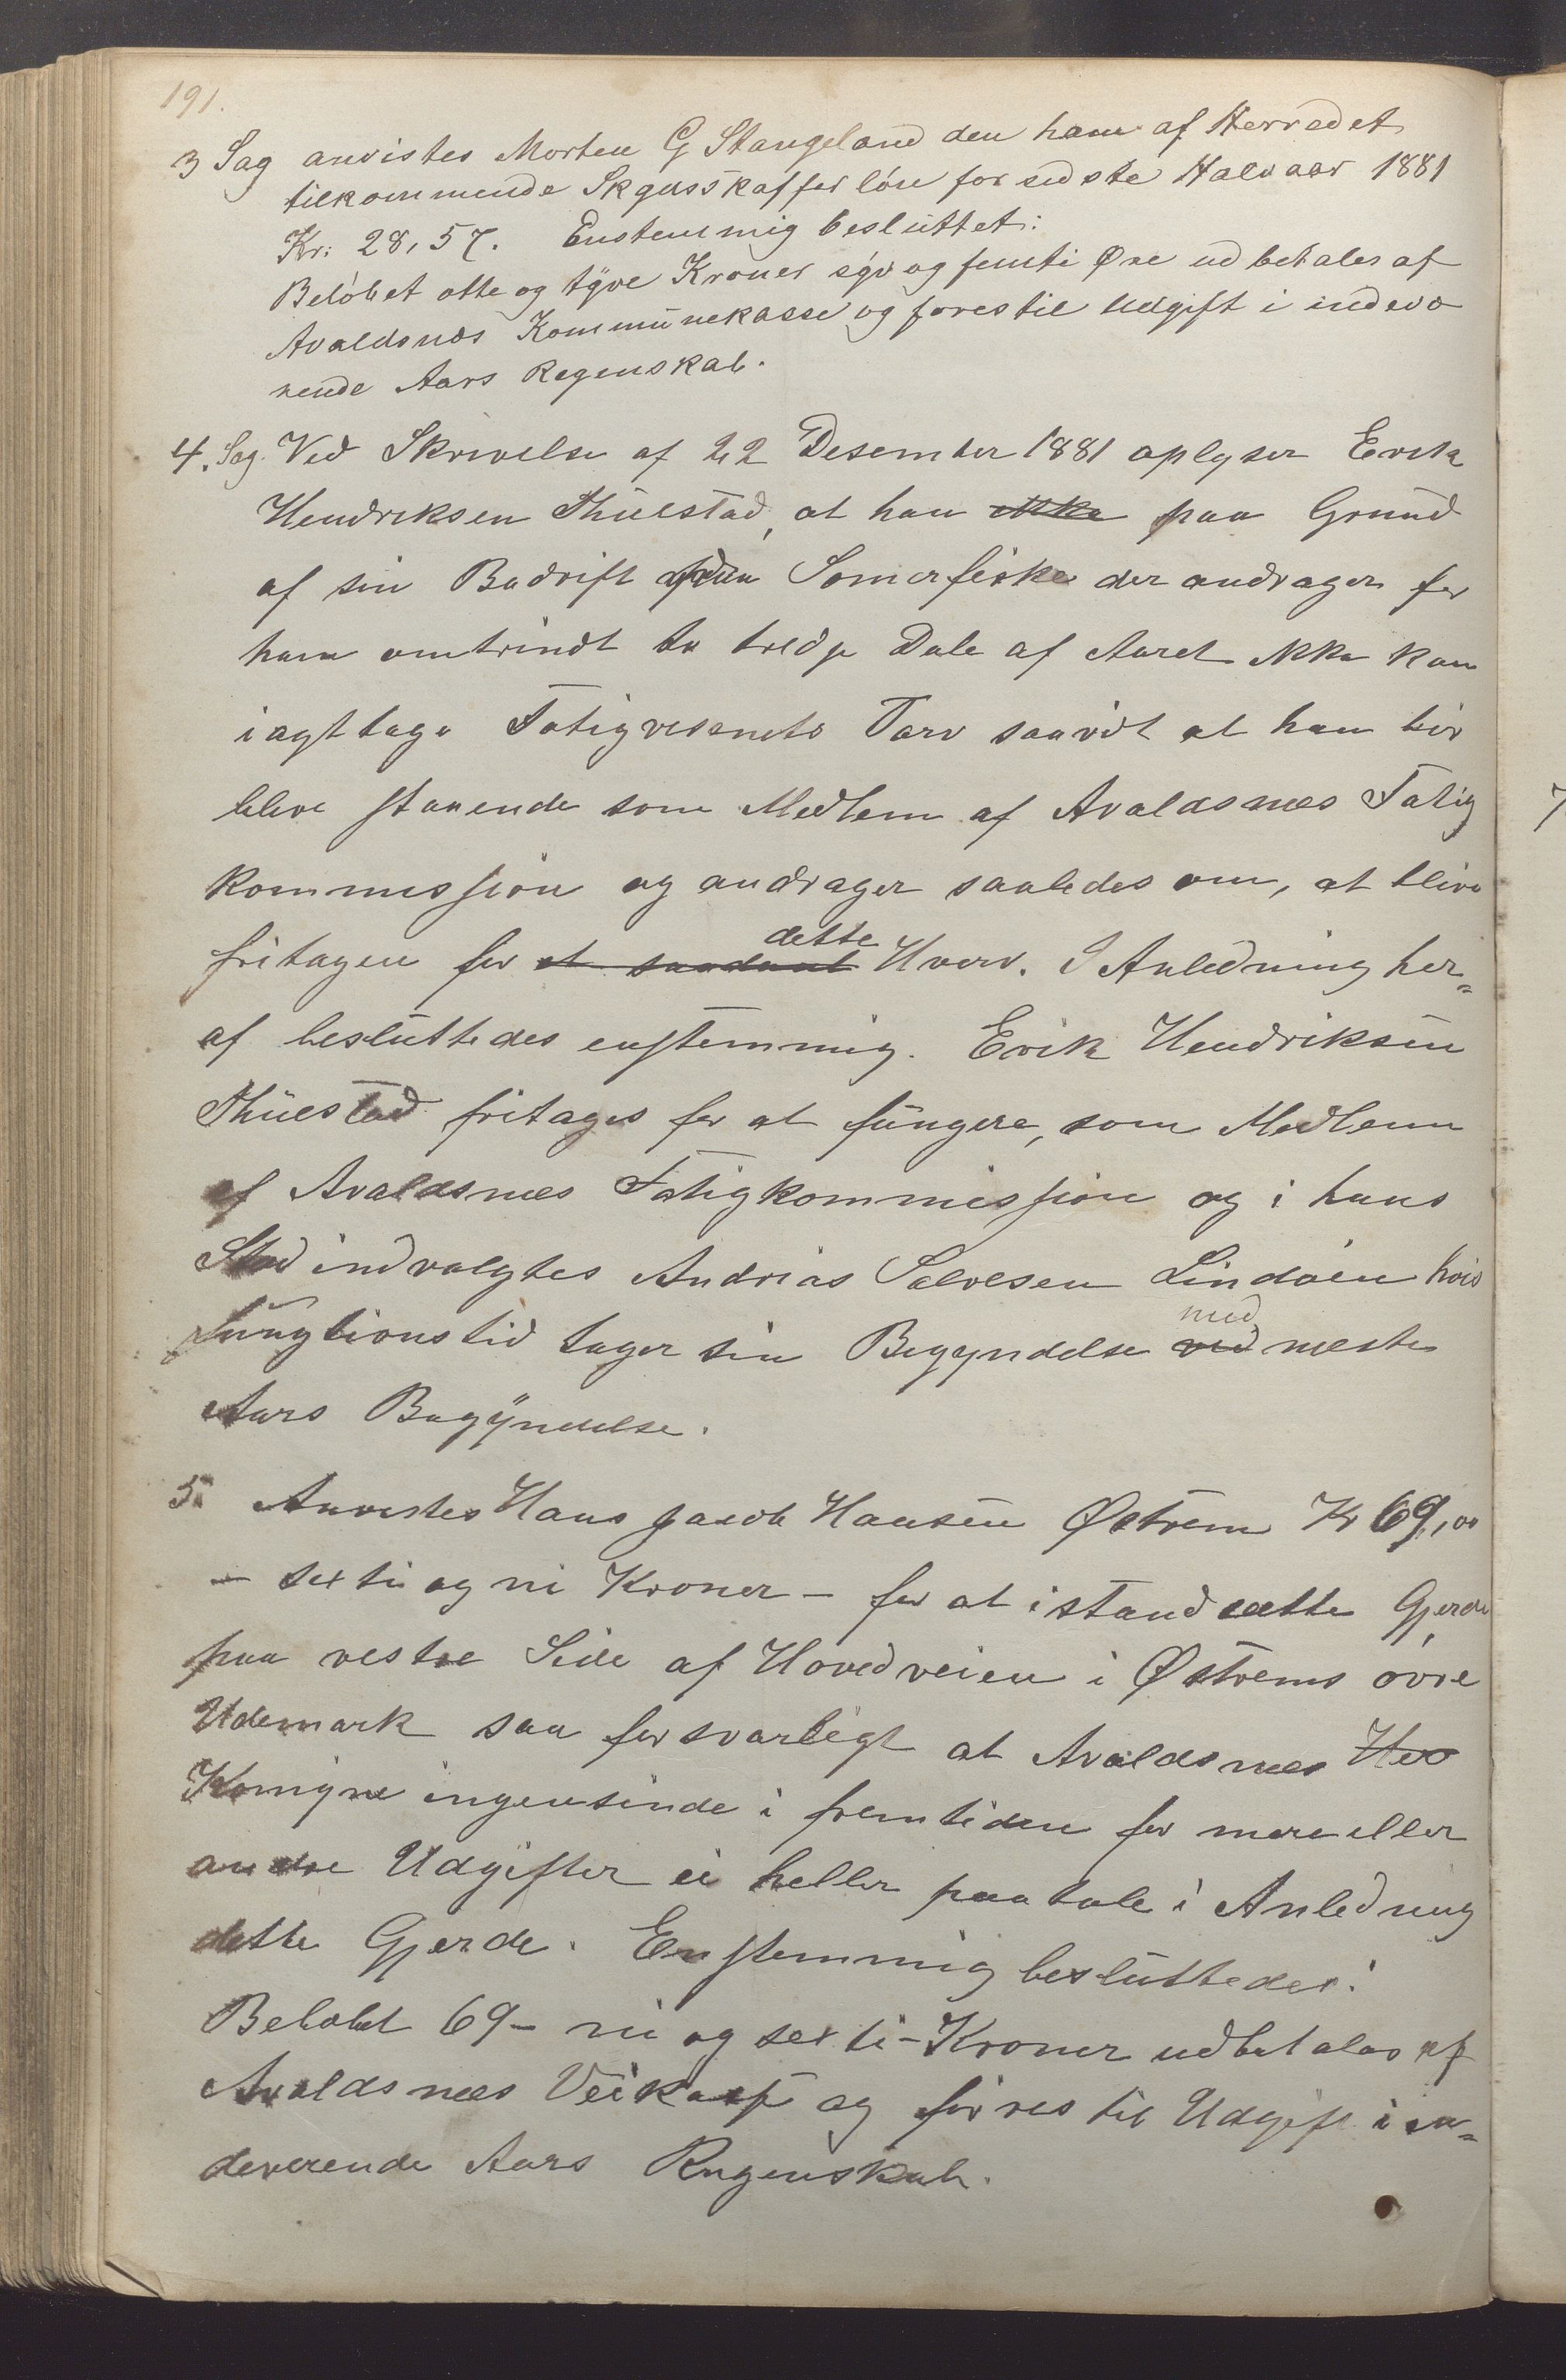 191.
3 Sag anvistes Morten G Stangeland den ham af Herredet
tilkommende Skydsskafferløn for sidste Halvaar 1881
Kr: 28,57. Enstemmig besluttet:
Beløbet otte og tyve Kroner syv og femti Øre udbetales af
Avaldsnæs Kommunekasse og føres til Udgift i indevæ
rende Aars Regenskab.
4. Sag. Ved Skrivelse af 22 Desember 1881 oplyser Erik
Hendriksen Thuestad, at han ikke paa Grund
af sin Bedrift Somerfiske der andrager for
ham omtrindt to tredje Dele af Aaret ikke kan
iagttage Fatigvesenets Tarv saavidt at han bør
blive staaende som Medlem af Avaldsnæs Fatig
kommission og andrager saaledes om, at blive
dette
fritagen for et saadant Hverv. I Anledning her=
af besluttedes enstemmig. Erik Hendriksen
Thuestad fritages for at fungere, som Medlem
af Avaldsnæs Fatigkommission og i hans
Sted indvalgtes Andreas Salvesen Lindøen hvis
med
fungtionstid tager sin Begyndelse ved næste
Aars Begyndelse.
5. Anvistes Hans Jacob Hansen Østrem Kr 69,00
– sexti og ni Kroner – for at istandsætte Gjerde
paa vestre Side af Hovedveien i Østrems øvre
Udemark saa forsvarligt at Avaldsnæs Her
Komyne ingensinde i fremtiden for mere eller
andre Udgifter ei heller paatale i Anledning
dette Gjerde. Enstemmig besluttedes:
Beløbet 69– ni og sexti–Kroner udbetales af
Avaldsnæs Veikasse og føres til Udgift i in=
deverende Aars Regenskab.